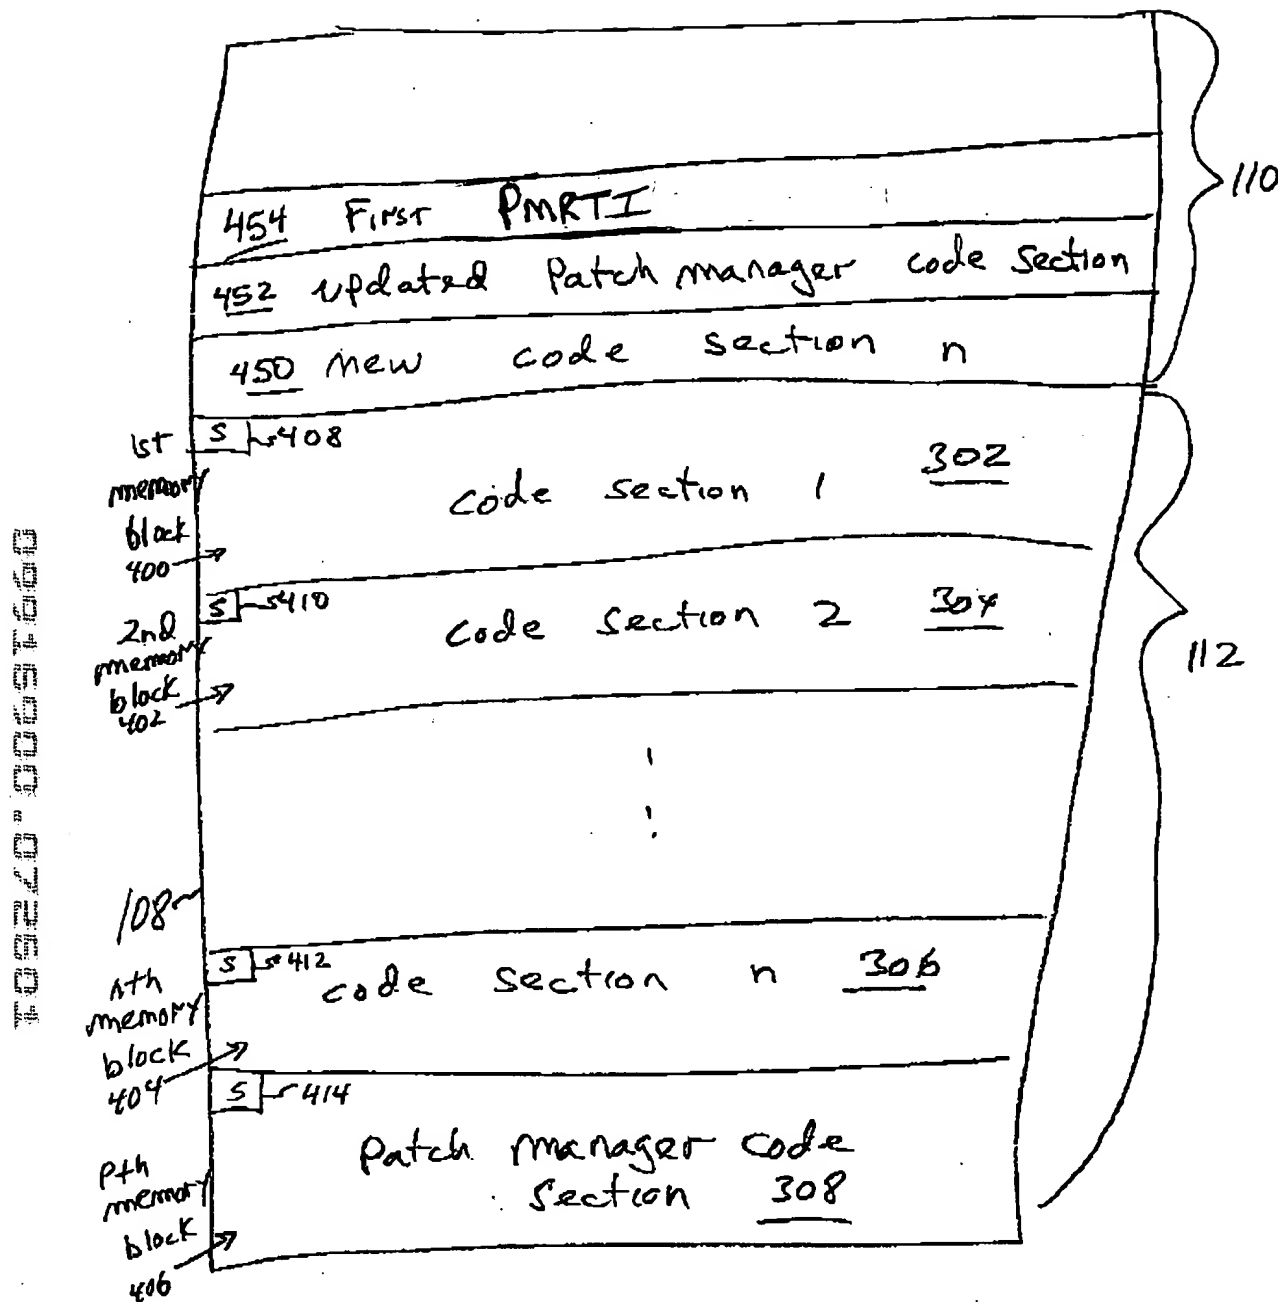 110
454 First PMRTI
452 updated Patch manager code section
450 new code section n
1st
memory
block
400
S 408
code section 1 302
2nd
memory
block
402
S 410
code section 2 304
112
108
nth
memory
block
404
S 412
code section n 306
S 414
Pth
memory
block
406
Patch manager code
section 308
09916900.072601